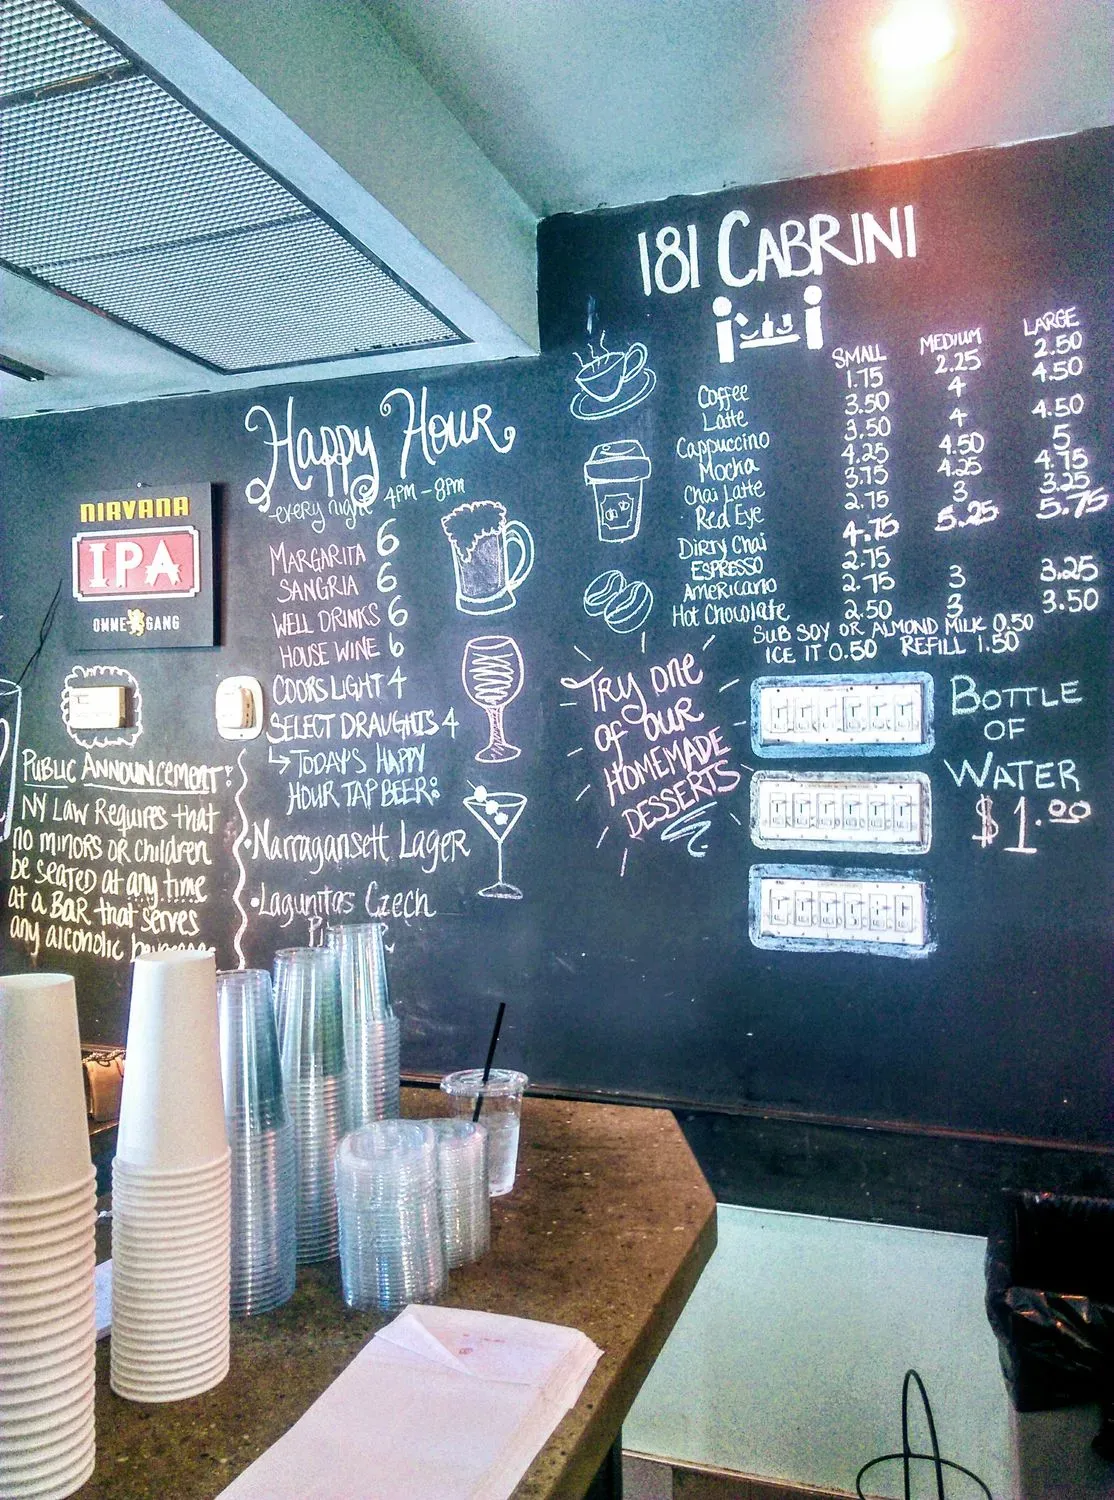 181 CABRINI
SMALL MEDIUM LARGE
Coffee 1.75 2.25 2.50
Latte 3.50 4 4.50
Cappuccino 3.50 4 4.50
Mocha 4.25 4.50 5
Chai Latte 3.75 4.25 4.75
Red Eye 2.75 3 3.25
Dirty Chai 4.75 5.25 5.75
ESPRESSO 2.75
Americano 2.75 3 3.25
Hot Chocolate 2.50 3 3.50
SUB SOY OR ALMOND MILK 0.50
ICE IT 0.50 REFILL 1.50
Happy Hour
every night 4PM - 8PM
MARGARITA 6
SANGRIA 6
WELL DRINKS 6
HOUSE WINE 6
COORS LIGHT 4
SELECT DRAUGHTS 4
↳ TODAY'S HAPPY
HOUR TAP BEER:
•Narragansett Lager
•Lagunitas Czech
NIRVANA
IPA
OMMEGANG
PUBLIC ANNOUNCEMENT:
NY LAW REQUIRES that
no minors or children
be seated at any time
at a BAR that serves
any alcoholic
TRY one
of our
HOMEMADE
DESSERTS
BOTTLE
OF
WATER
$1.00